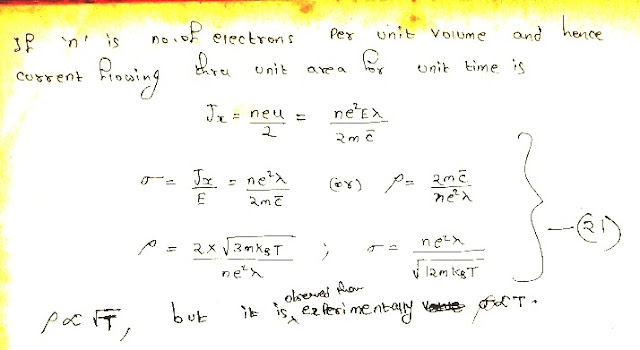 If 'n' is no. of electrons per unit volume and hence
current flowing thru unit area for unit time is
Jx = neu/2 = ne²Eλ/2mc̄
σ = Jx/E = ne²λ/2mc̄ (or) ρ = 2mc̄/ne²λ
ρ = 2×√3mKBT/ne²λ ; σ = ne²λ/√12mKBT —(21)
observed from
ρ∝√T, but it is ‸ experimentally ρ∝T.